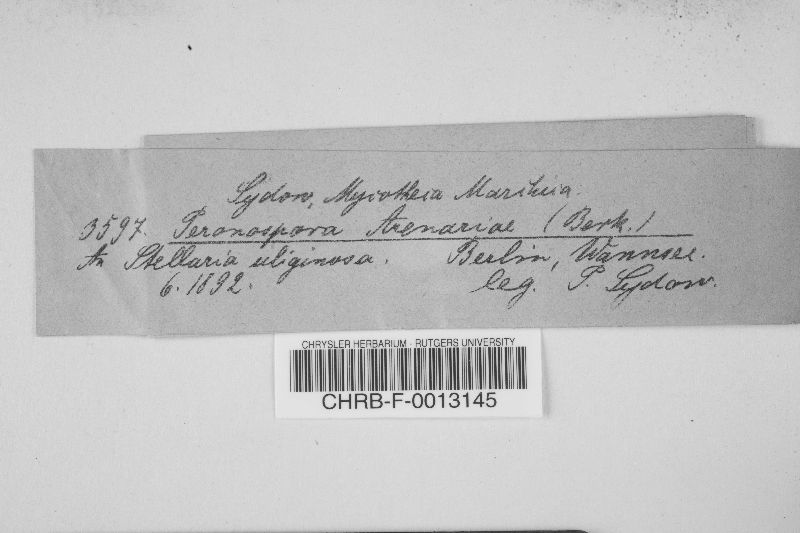 Sydow, Mycotheca Marchica.
3597. Peronospora Arenariae (Berk.)
An Stellaria uliginosa. Berlin, Wannsee.
6.1892. leg. P. Sydow.
CHRYSLER HERBARIUM - RUTGERS UNIVERSITY
CHRB-F-0013145